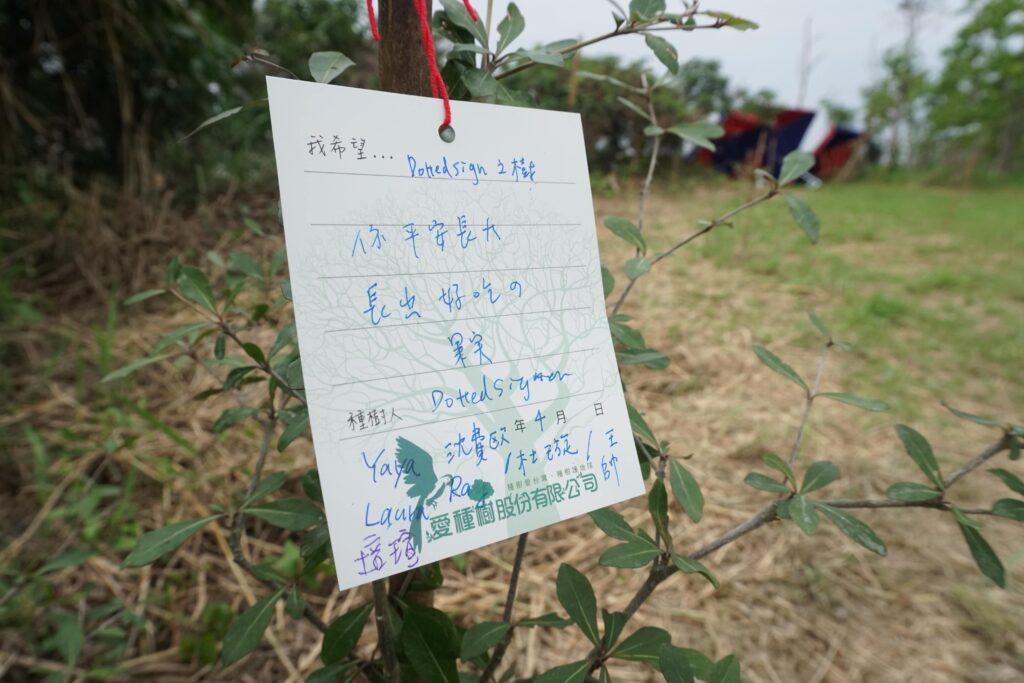 我希望... Dottedsign 之樹
你平安長大
長出好吃の
果実
種樹人 Dottedsigner
年 4 月 日
Yaya 沈費歐 / 杜 / 王帥
種樹愛台灣、種樹護地球
Laura Ra
愛種樹股份有限公司